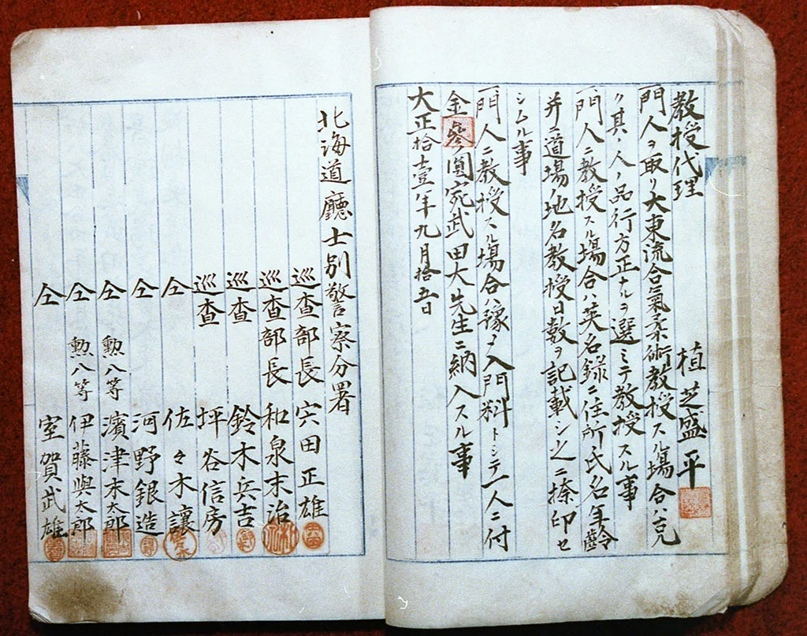 教授代理
植芝盛平
一、門人ヲ取リ大東流合氣柔術教授スル場合ハ克
ク其ノ人ノ品行方正ナルヲ選ミテ教授スル事
一、門人ニ教授スル場合ハ英名録ニ住所氏名年齡
并ニ道場ノ地名教授日數ヲ記載シ之ニ捺印セ
シムル事
一、門人ニ教授スル場合ハ豫メ入門料トシテ一人ニ付
金參圓宛武田大先生ニ納入スル事
大正拾壹年九月拾五日
北海道廳士別警察分署
巡查部長 宍田正雄
巡查部長 和泉末治
巡查 鈴木兵吉
巡查 坪谷信房
仝 佐々木讓
仝 河野銀造
仝 勲八等 濱津末太郎
仝 勲八等 伊藤與太郎
仝 室賀武雄